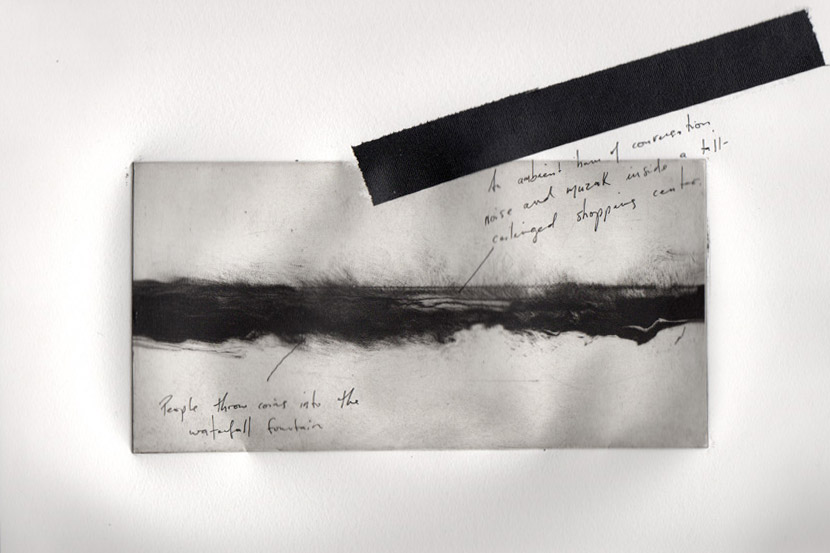 An ambient hum of conversation
noise and muzak inside a tall-
ceilinged shopping center.
People throw coins into the
waterfall fountain